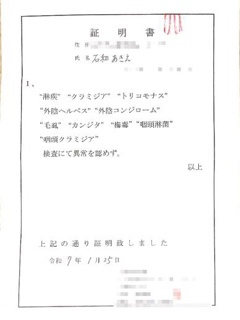 証明書
住所
氏名
1、
“淋疾” “クラミジア” “トリコモナス”
“外陰ヘルペス” “外陰コンジローム”
“毛虱” “カンジタ” “梅毒” “咽頭淋菌”
“咽頭クラミジア”
検査にて異常を認めず。
以上
上記の通り証明致しました
令和7年1月15日